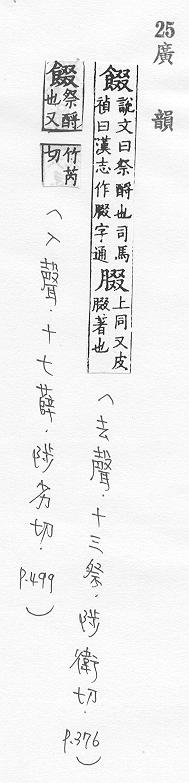 25廣 韻
餟說文曰祭酹也司馬禎曰漢志作腏字通腏上同又皮腏著也（去聲．十三祭．陟衛切．P.376）
餟祭酹也又竹芮切（入聲．十七薛．陟劣切．P.499）